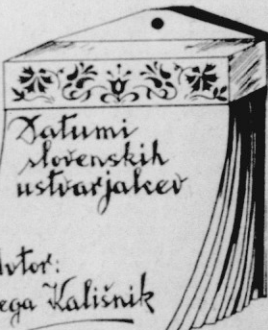 Datumi
slovenskih
ustvarjalcev
Avtor:
Kališnik